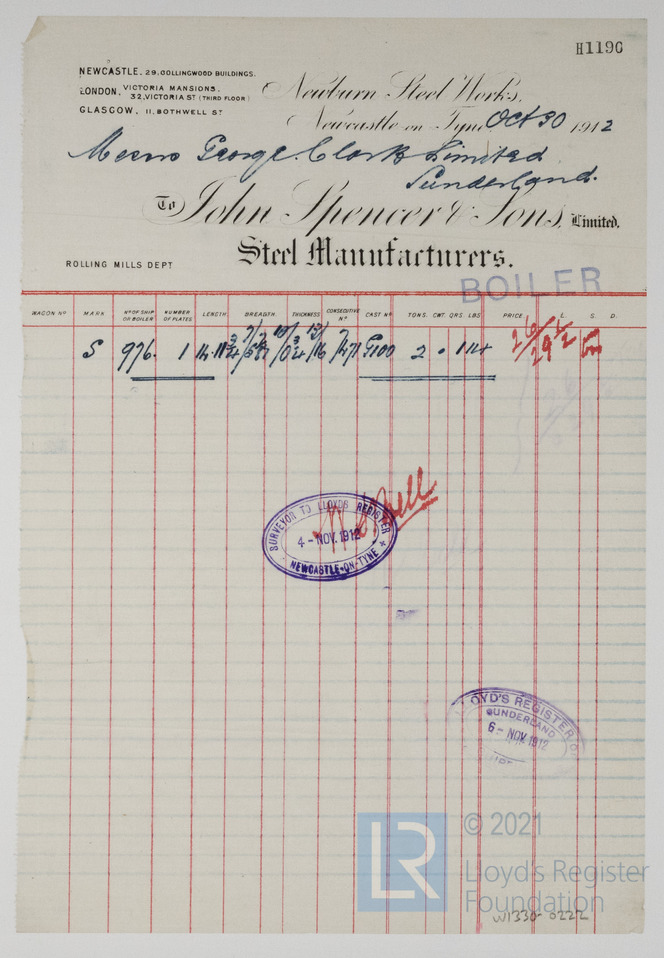 H1196
NEWCASTLE. 29, COLLINGWOOD BUILDINGS.
LONDON, VICTORIA MANSIONS, 32, VICTORIA ST (THIRD FLOOR)
GLASGOW, 11, BOTHWELL ST
Newburn Steel Works,
Newcastle on Tyne Oct 30 1912
Messrs George Clark Limited
Sunderland.
To John Spencer & Sons, Limited.
Steel Manufacturers.
ROLLING MILLS DEPT
BOILER
WAGON Nº MARK Nº OF SHIP OR BOILER NUMBER OF PLATES LENGTH BREADTH. THICKNESS CONSECUTIVE Nº CAST Nº TONS. CWT. QRS. LBS PRICE £. S. D.
S 976. 1 2 . 1 14
SURVEYOR TO LLOYDS REGISTER
4 - NOV. 1912
NEWCASTLE-ON-TYNE
LOYD'S REGISTER O
SUNDERLAND
6 - NOV. 1912
© 2021
LR Lloyd's Register
Foundation
W1330-0222